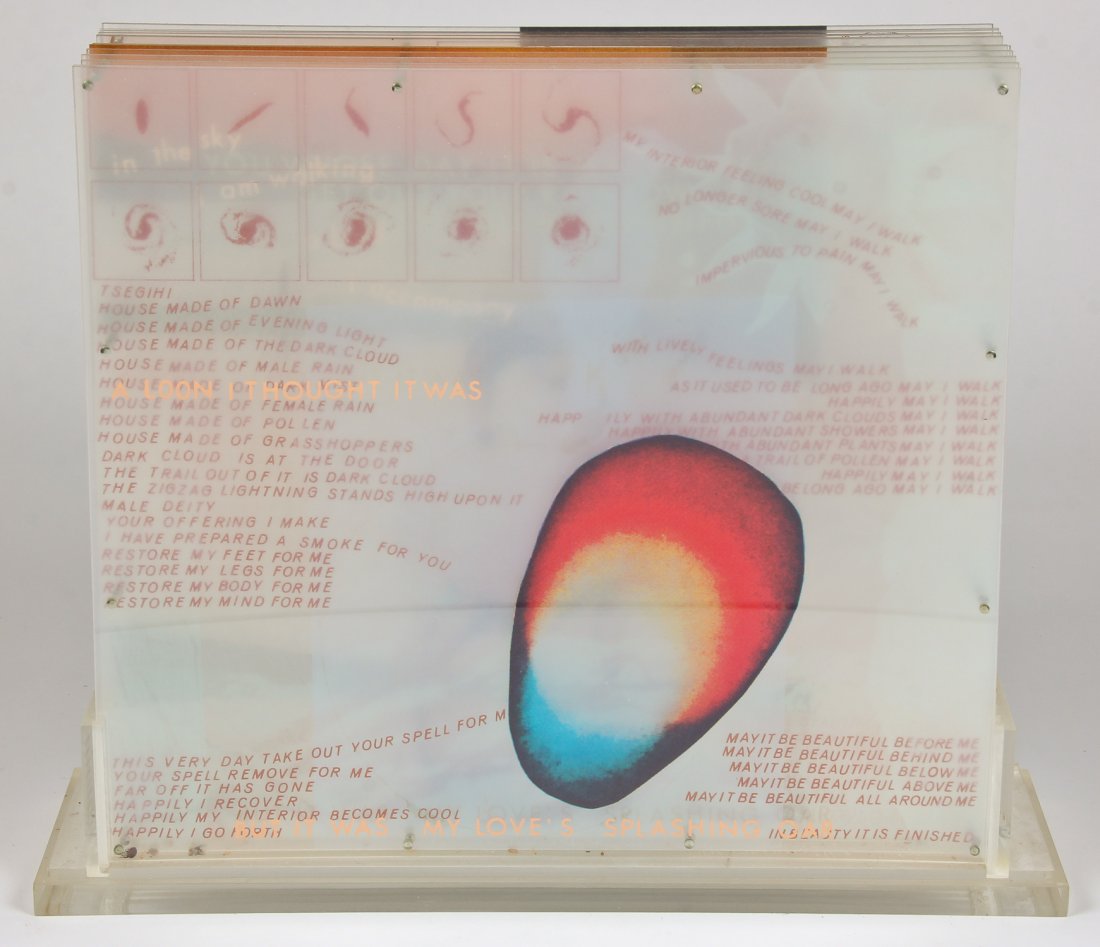 in the sky
am walking
MY INTERIOR FEELING COOL MAY I WALK
NO LONGER SORE MAY I WALK
IMPERVIOUS TO PAIN MAY I WALK
WITH LIVELY FEELINGS MAY I WALK
AS IT USED TO BE LONG AGO MAY I WALK
HAPPILY MAY I WALK
HAPPILY WITH ABUNDANT DARK CLOUDS MAY I WALK
HAPPILY WITH ABUNDANT SHOWERS MAY I WALK
ABUNDANT PLANTS MAY I WALK
TRAIL OF POLLEN MAY I WALK
HAPPILY MAY I WALK
BE LONG AGO MAY I WALK
TSEGIHI
HOUSE MADE OF DAWN
HOUSE MADE OF EVENING LIGHT
HOUSE MADE OF THE DARK CLOUD
HOUSE MADE OF MALE RAIN
HOUSE MADE OF
A LOON I THOUGHT IT WAS
HOUSE MADE OF FEMALE RAIN
HOUSE MADE OF POLLEN
HOUSE MADE OF GRASSHOPPERS
DARK CLOUD IS AT THE DOOR
THE TRAIL OUT OF IT IS DARK CLOUD
THE ZIGZAG LIGHTNING STANDS HIGH UPON IT
MALE DEITY
YOUR OFFERING I MAKE
I HAVE PREPARED A SMOKE FOR YOU
RESTORE MY FEET FOR ME
RESTORE MY LEGS FOR ME
RESTORE MY BODY FOR ME
RESTORE MY MIND FOR ME
THIS VERY DAY TAKE OUT YOUR SPELL FOR M
YOUR SPELL REMOVE FOR ME
FAR OFF IT HAS GONE
HAPPILY I RECOVER
HAPPILY MY INTERIOR BECOMES COOL
HAPPILY I GO FORTH
BUT IT WAS MY LOVE'S SPLASHING OAR
MAY IT BE BEAUTIFUL BEFORE ME
MAY IT BE BEAUTIFUL BEHIND ME
MAY IT BE BEAUTIFUL BELOW ME
MAY IT BE BEAUTIFUL ABOVE ME
MAY IT BE BEAUTIFUL ALL AROUND ME
IN BEAUTY IT IS FINISHED